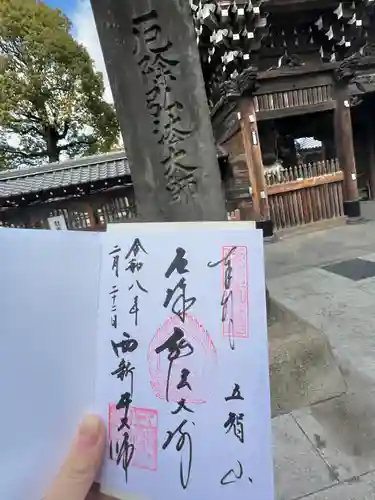 厄除弘法大師
奉拝
五智山
厄除弘法大師
令和八年
二月二十二日
西新井大師